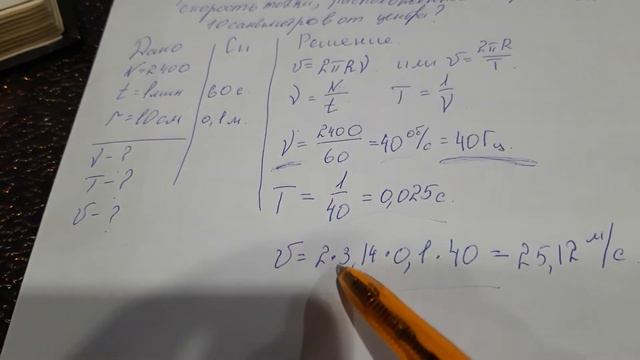 скорость точки, расположенной
10 сантиметров от центра?
Дано
Си
Решение.
N=2400
t=1 мин
60 с.
r=10 см
0,1 м.
ν-?
T-?
v-?
v=2πRν или v=2πR/T.
ν=N/t T=1/ν
ν=2400/60=40 об/с=40 Гц.
T=1/40=0,025 с.
v=2·3,14·0,1·40=25,12 м/с.